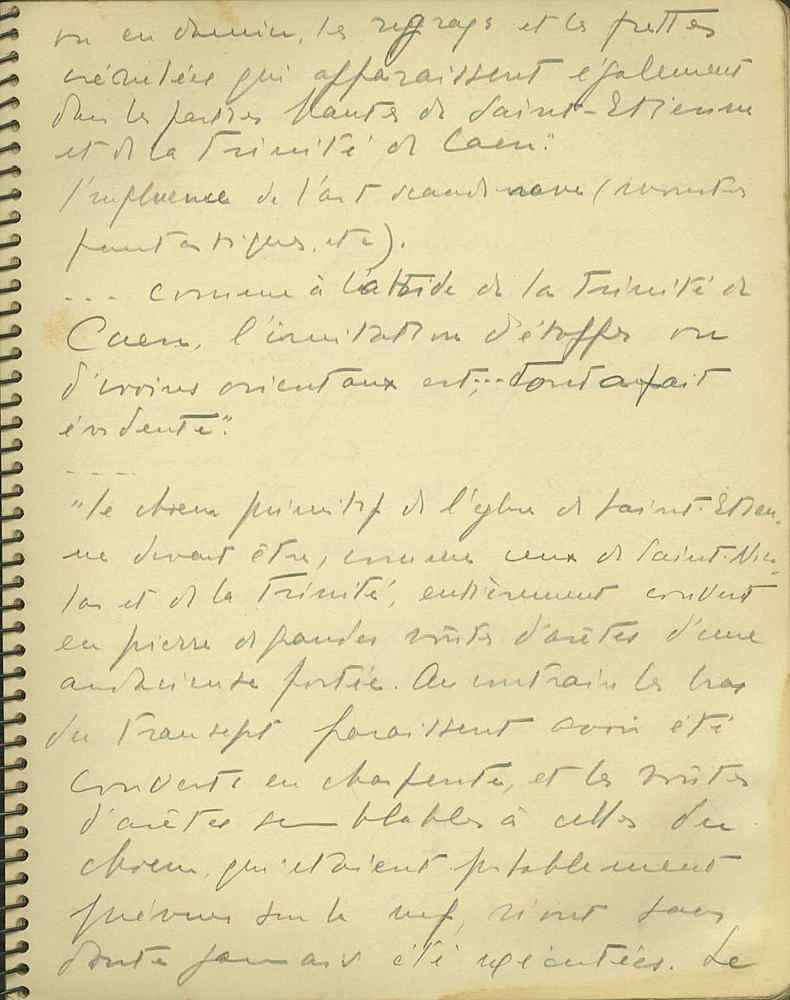 ou en damier, les zigzags et les frettes
crénelées qui apparaissent également
dans les parties hautes de Saint-Etienne
et de la Trinité de Caen."
l'influence de l'art scandinave (monstres
fantastiques, etc).
... comme à l'abside de la Trinité de
Caen, l'imitation d'étoffes ou
d'ivoires orientaux est,... tout à fait
évidente".
----
"Le choeur primitif de l'église de Saint-Etien-
ne devait être, comme ceux de Saint-Nico-
las et de la Trinité, entièrement couvert
en pierre de grandes voûtes d'arêtes d'une
audacieuse portée. Au contraire les bras
du transept paraissent avoir été
couverts en charpente, et les voûtes
d'arêtes semblables à celles du
choeur, qui étaient probablement
prévues sur la nef, n'ont sans
doute jamais été exécutées. Le